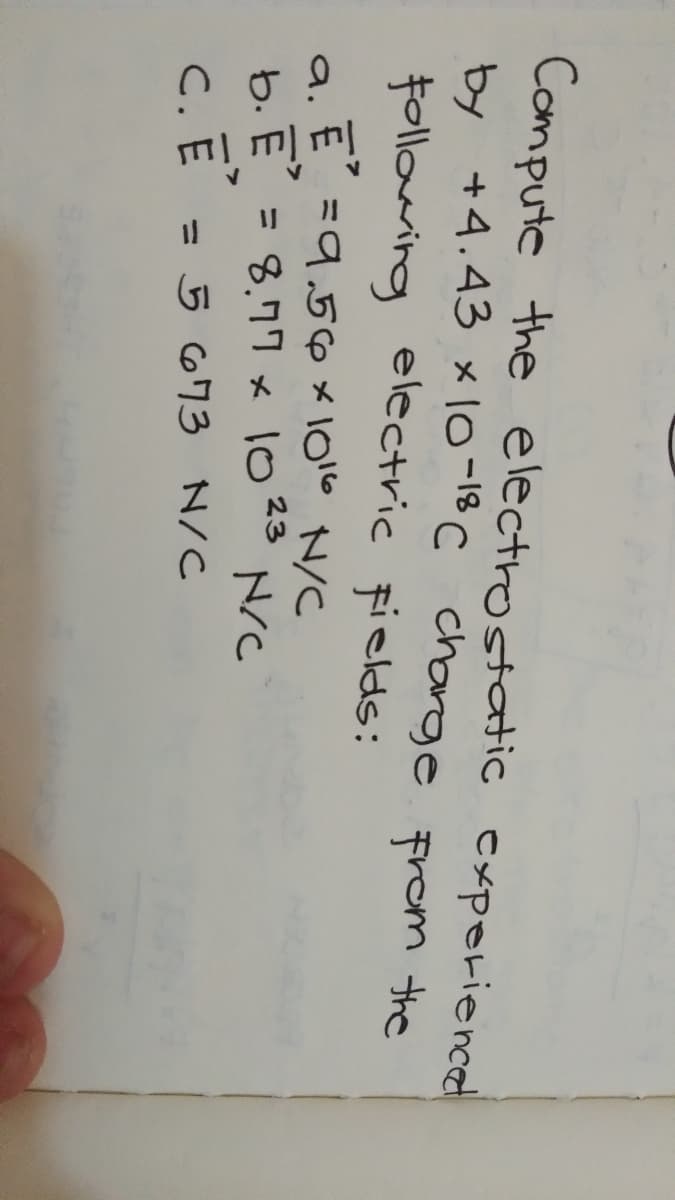 Compute the electrostatic experienced
by +4.43 x 10⁻¹⁸ C charge from the
following electric fields:
a. E⃗ = 9.56 x 10¹⁶ N/C
b. E⃗ = 8.77 x 10²³ N/C
C. E⃗ = 5 673 N/C